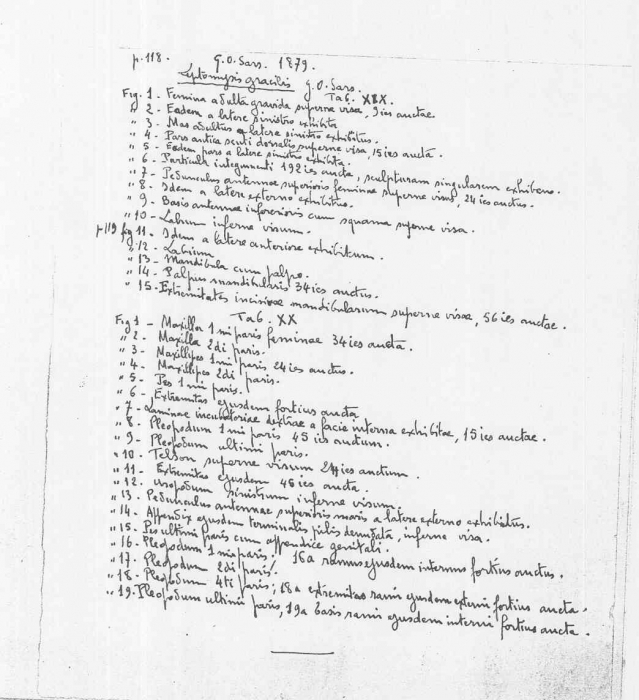 p.118. G.O. Sars. 1879.
Leptomysis gracilis G.O. Sars.
Tab. XIX.
Fig. 1 - Femina adulta gravida superne visa, 9ies auctae.
" 2 - Eadem a latere sinistro exhibita
" 3 - Mas adultus a latere sinistro exhibitus.
" 4 - Pars antica scuti dorsalis superne visa, 15ies aucta.
" 5 - Eadem pars a latere sinistro exhibita.
" 6 - Particula integumenti 192ies aucta, sculpturam singularem exhibens.
" 7 - Pedunculus antennae superioris feminae superne visus, 24ies auctus.
" 8 - Idem a latere externo exhibitus.
" 9 - Basis antennae inferioris cum squama superne visa.
" 10 - Labrum inferne visum.
p119 fig 11 - Idem a latere anteriore exhibitum.
" 12 - Labium
" 13 - Mandibula cum palpo.
" 14 - Palpus mandibularis 34ies auctus.
" 15 - Extremitates incisivae mandibularum superne visae, 56ies auctae.
Tab. XX
Fig 1 - Maxilla 1mi paris feminae 34ies aucta.
" 2 - Maxilla 2di paris.
" 3 - Maxillipes 1mi paris 24ies auctus.
" 4 - Maxillipes 2di paris.
" 5 - Pes 1mi paris.
" 6 - Extremitas ejusdem fortius aucta
" 7 - Laminae incubatoriae dextrae a facie interna exhibitae, 15ies auctae.
" 8 - Pleopodum 1mi paris 45ies auctum.
" 9 - Pleopodum ultimi paris.
" 10 - Telson superne visum 24ies auctum.
" 11 - Extremitas ejusdem 45ies aucta.
" 12 - Uropodum sinistrum inferne visum
" 13 - Pedunculus antennae superioris maris a latere externo exhibitus.
" 14 - Appendix ejusdem terminalis pilis denudata, inferne visa.
" 15 - Pes ultimi paris cum appendice genitali.
" 16 - Pleopodum 1mi paris. 16a ramus ejusdem internus fortius auctus.
" 17 - Pleopodum 2di paris.
" 18 - Pleopodum 4ti paris; 18a extremitas rami ejusdem externi fortius aucta.
" 19 - Pleopodum ultimi paris, 19a basis rami ejusdem interni fortius aucta.